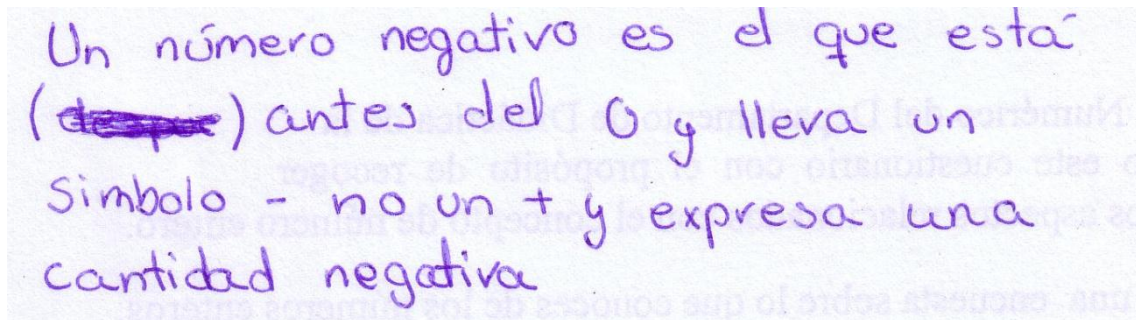 Un número negativo es el que está
() antes del 0 y lleva un
simbolo - no un + y expresa una
cantidad negativa